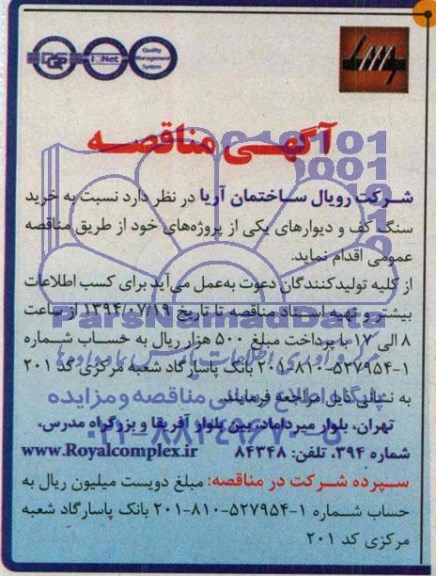 IQNet
Quality
Management
System
آگهی مناقصه
شرکت رویال ساختمان آریا در نظر دارد نسبت به خرید
سنگ کف و دیوارهای یکی از پروژه‌های خود از طریق مناقصه
عمومی اقدام نماید.
از کلیه تولیدکنندگان دعوت به‌عمل می‌آید برای کسب اطلاعات
بیشتر و تهیه اسناد مناقصه تا تاریخ ۱۳۹۴/۰۷/۱۹ از ساعت
ParsNamadData
۸ الی ۱۷ با پرداخت مبلغ ۵۰۰ هزار ریال به حساب شماره
۲۰۱-۸۱۰-۵۲۷۹۵۴-۱ بانک پاسارگاد شعبه مرکزی کد ۲۰۱
به نشانی ذیل مراجعه فرمایند.
تهران، بلوار میرداماد، بین بلوار آفریقا و بزرگراه مدرس،
شماره ۳۹۴، تلفن: ۸۴۳۴۸ www.Royalcomplex.ir
سپرده شرکت در مناقصه: مبلغ دویست میلیون ریال به
حساب شماره ۲۰۱-۸۱۰-۵۲۷۹۵۴-۱ بانک پاسارگاد شعبه
مرکزی کد ۲۰۱